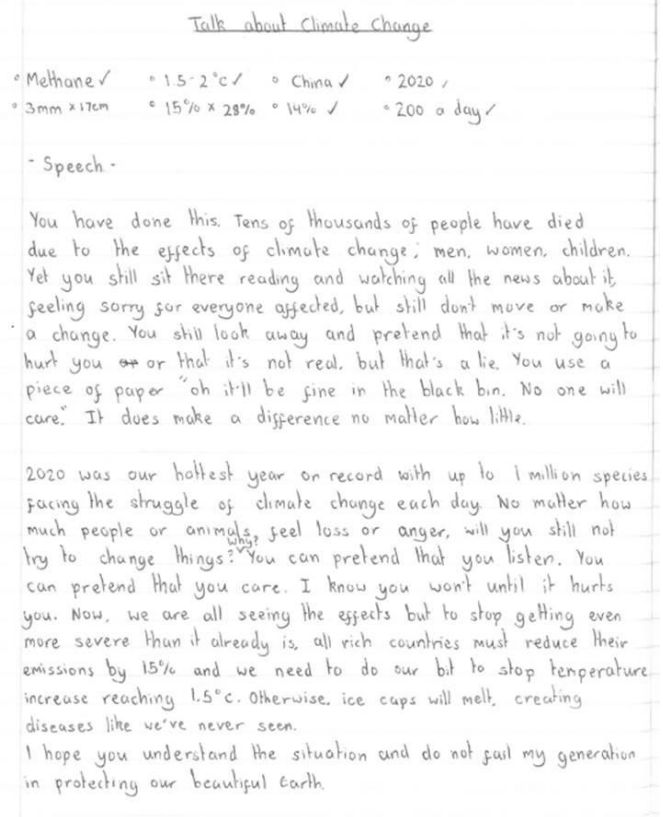 Talk about Climate Change
° Methane ✓ ° 1.5-2°c ✓ ° China ✓ ° 2020 ✓
° 3mm x 17cm ° 15% x 28% ° 14% ✓ ° 200 a day ✓
- Speech -
You have done this. Tens of thousands of people have died
due to the effects of climate change; men, women, children.
Yet you still sit there reading and watching all the news about it,
feeling sorry for everyone affected, but still don't move or make
a change. You still look away and pretend that it's not going to
hurt you or or that it's not real, but that's a lie. You use a
piece of paper "oh it'll be fine in the black bin. No one will
care." It does make a difference no matter how little.
2020 was our hottest year on record with up to 1 million species
facing the struggle of climate change each day. No matter how
much people or animals feel loss or anger, will you still not
try to change things? Why? You can pretend that you listen. You
can pretend that you care. I know you won't until it hurts
you. Now, we are all seeing the effects but to stop getting even
more severe than it already is, all rich countries must reduce their
emissions by 15% and we need to do our bit to stop temperature
increase reaching 1.5°c. Otherwise, ice caps will melt, creating
diseases like we've never seen.
I hope you understand the situation and do not fail my generation
in protecting our beautiful Earth.